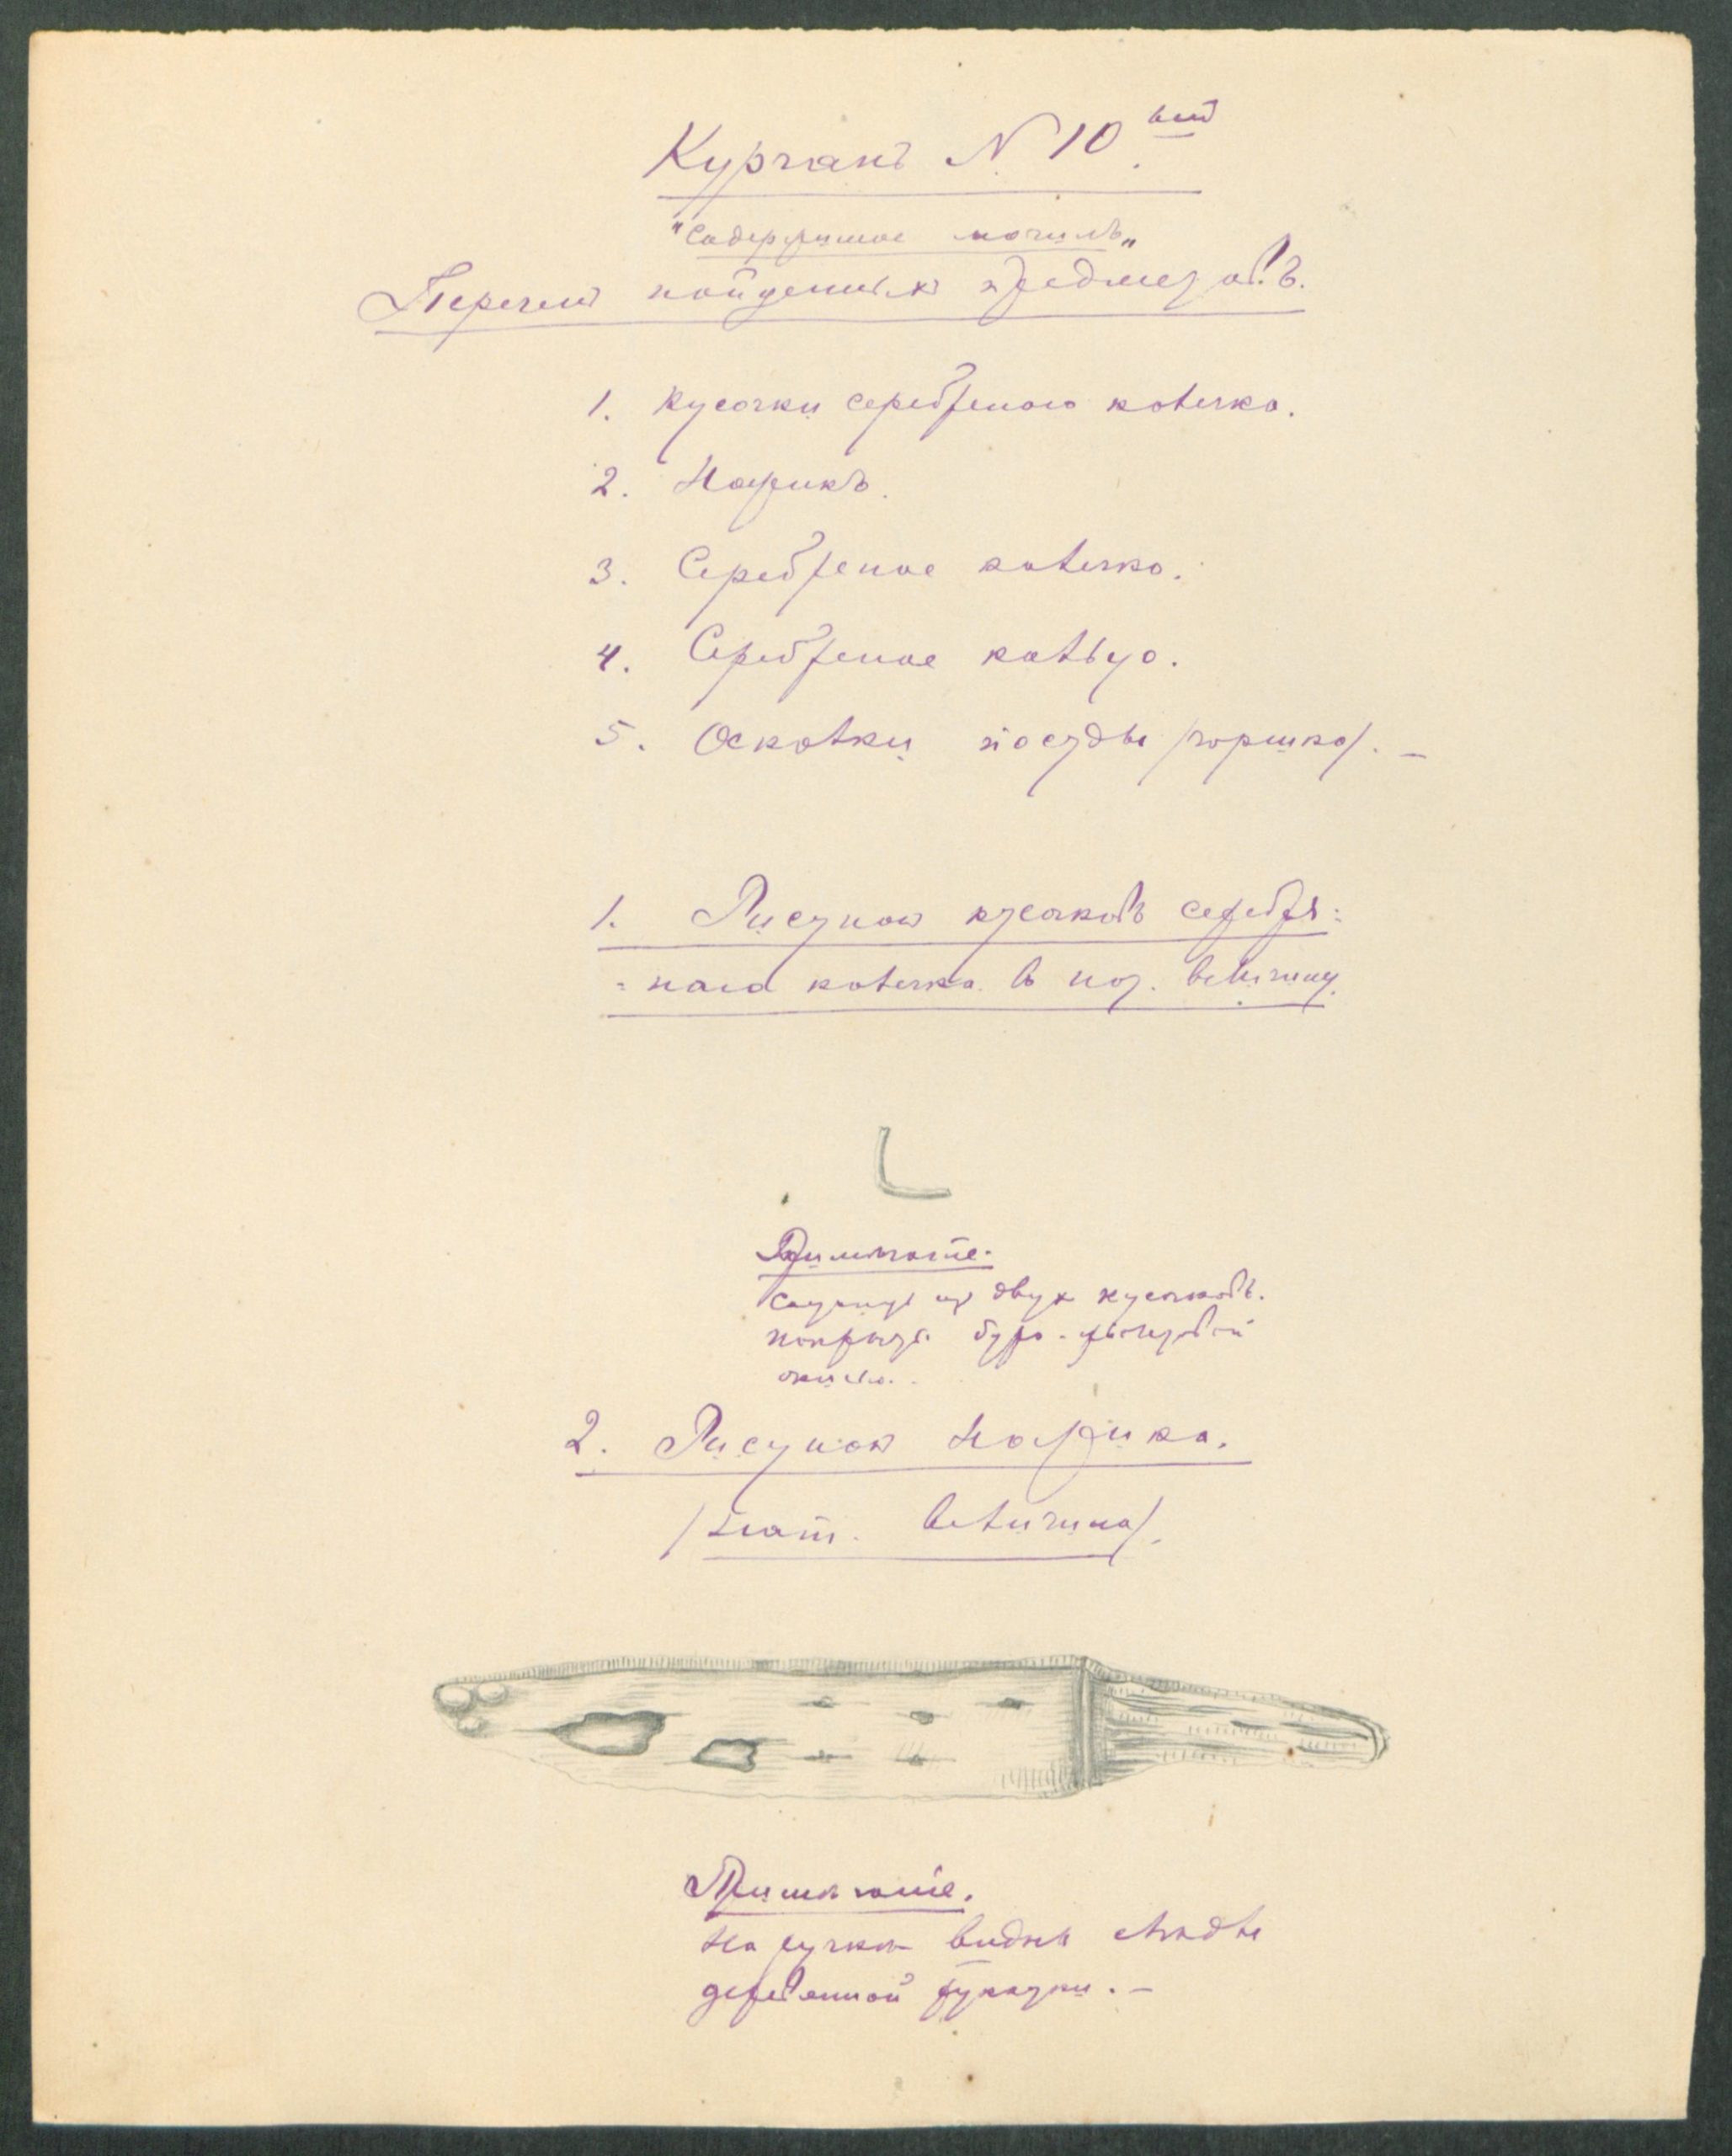 Курганъ N 10.ый
"Содержимое могилъ"
Перечень найденыхъ предметовъ.
1. Кусочки серебренаго колечка.
2. Ножикъ.
3. Серебреное колечко.
4. Серебреное кольцо.
5. Осколки посуды /горшка/. –
1. Рисунокъ кусочковъ серебря:
= наго колечка въ нат. величину.
Примѣчаніе.
двух кусочковъ.
покрыты буро-
окисью.
2. Рисунокъ Ножика.
/нат. величина/.
Примѣчаніе.
На ручкѣ видны слѣды
деревянной рукоятки. –